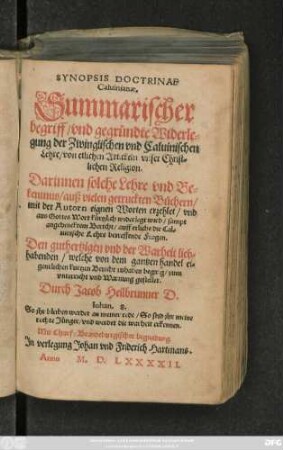 SYNOPSIS DOCTRINAE
Caluinianae,
Summarischer
begriff/ vnd gegründte Widerle-
gung der Zwinglischen vnd Caluinischen
Lehre/ von etlichen Artickeln vnser Christ-
lichen Religion.
Darinnen solche Lehre vnd Be-
kenntnus/ auß vielen getruckten Büchern/
mit der Autorn eignen Worten erzehlet/ vnd
aus Gottes Wort widerlegt wird/ sampt
angehencktem Bericht/ auff etliche die Cal-
uinische Lehre betreffende Fragen.
Den guthertzigen vnd der Warheit lieb-
habenden/ welche von dem gantzen handel ei-
gentlichen kurtzen Bericht zuhaben begerig/ zum
vnterricht vnd Warnung gestellet.
Durch Jacob Heilbrunner D.
Iohan. 8.
So jhr bleiben werdet an meiner rede/ So seid jhr meine
rechte Jünger/ vnd werdet die warheit erkennen.
Mit Churf. Brandeburgischer begnadung.
In verlegung Johan vnd Friderich Hartmans.
Anno M. D. LXXXXII.